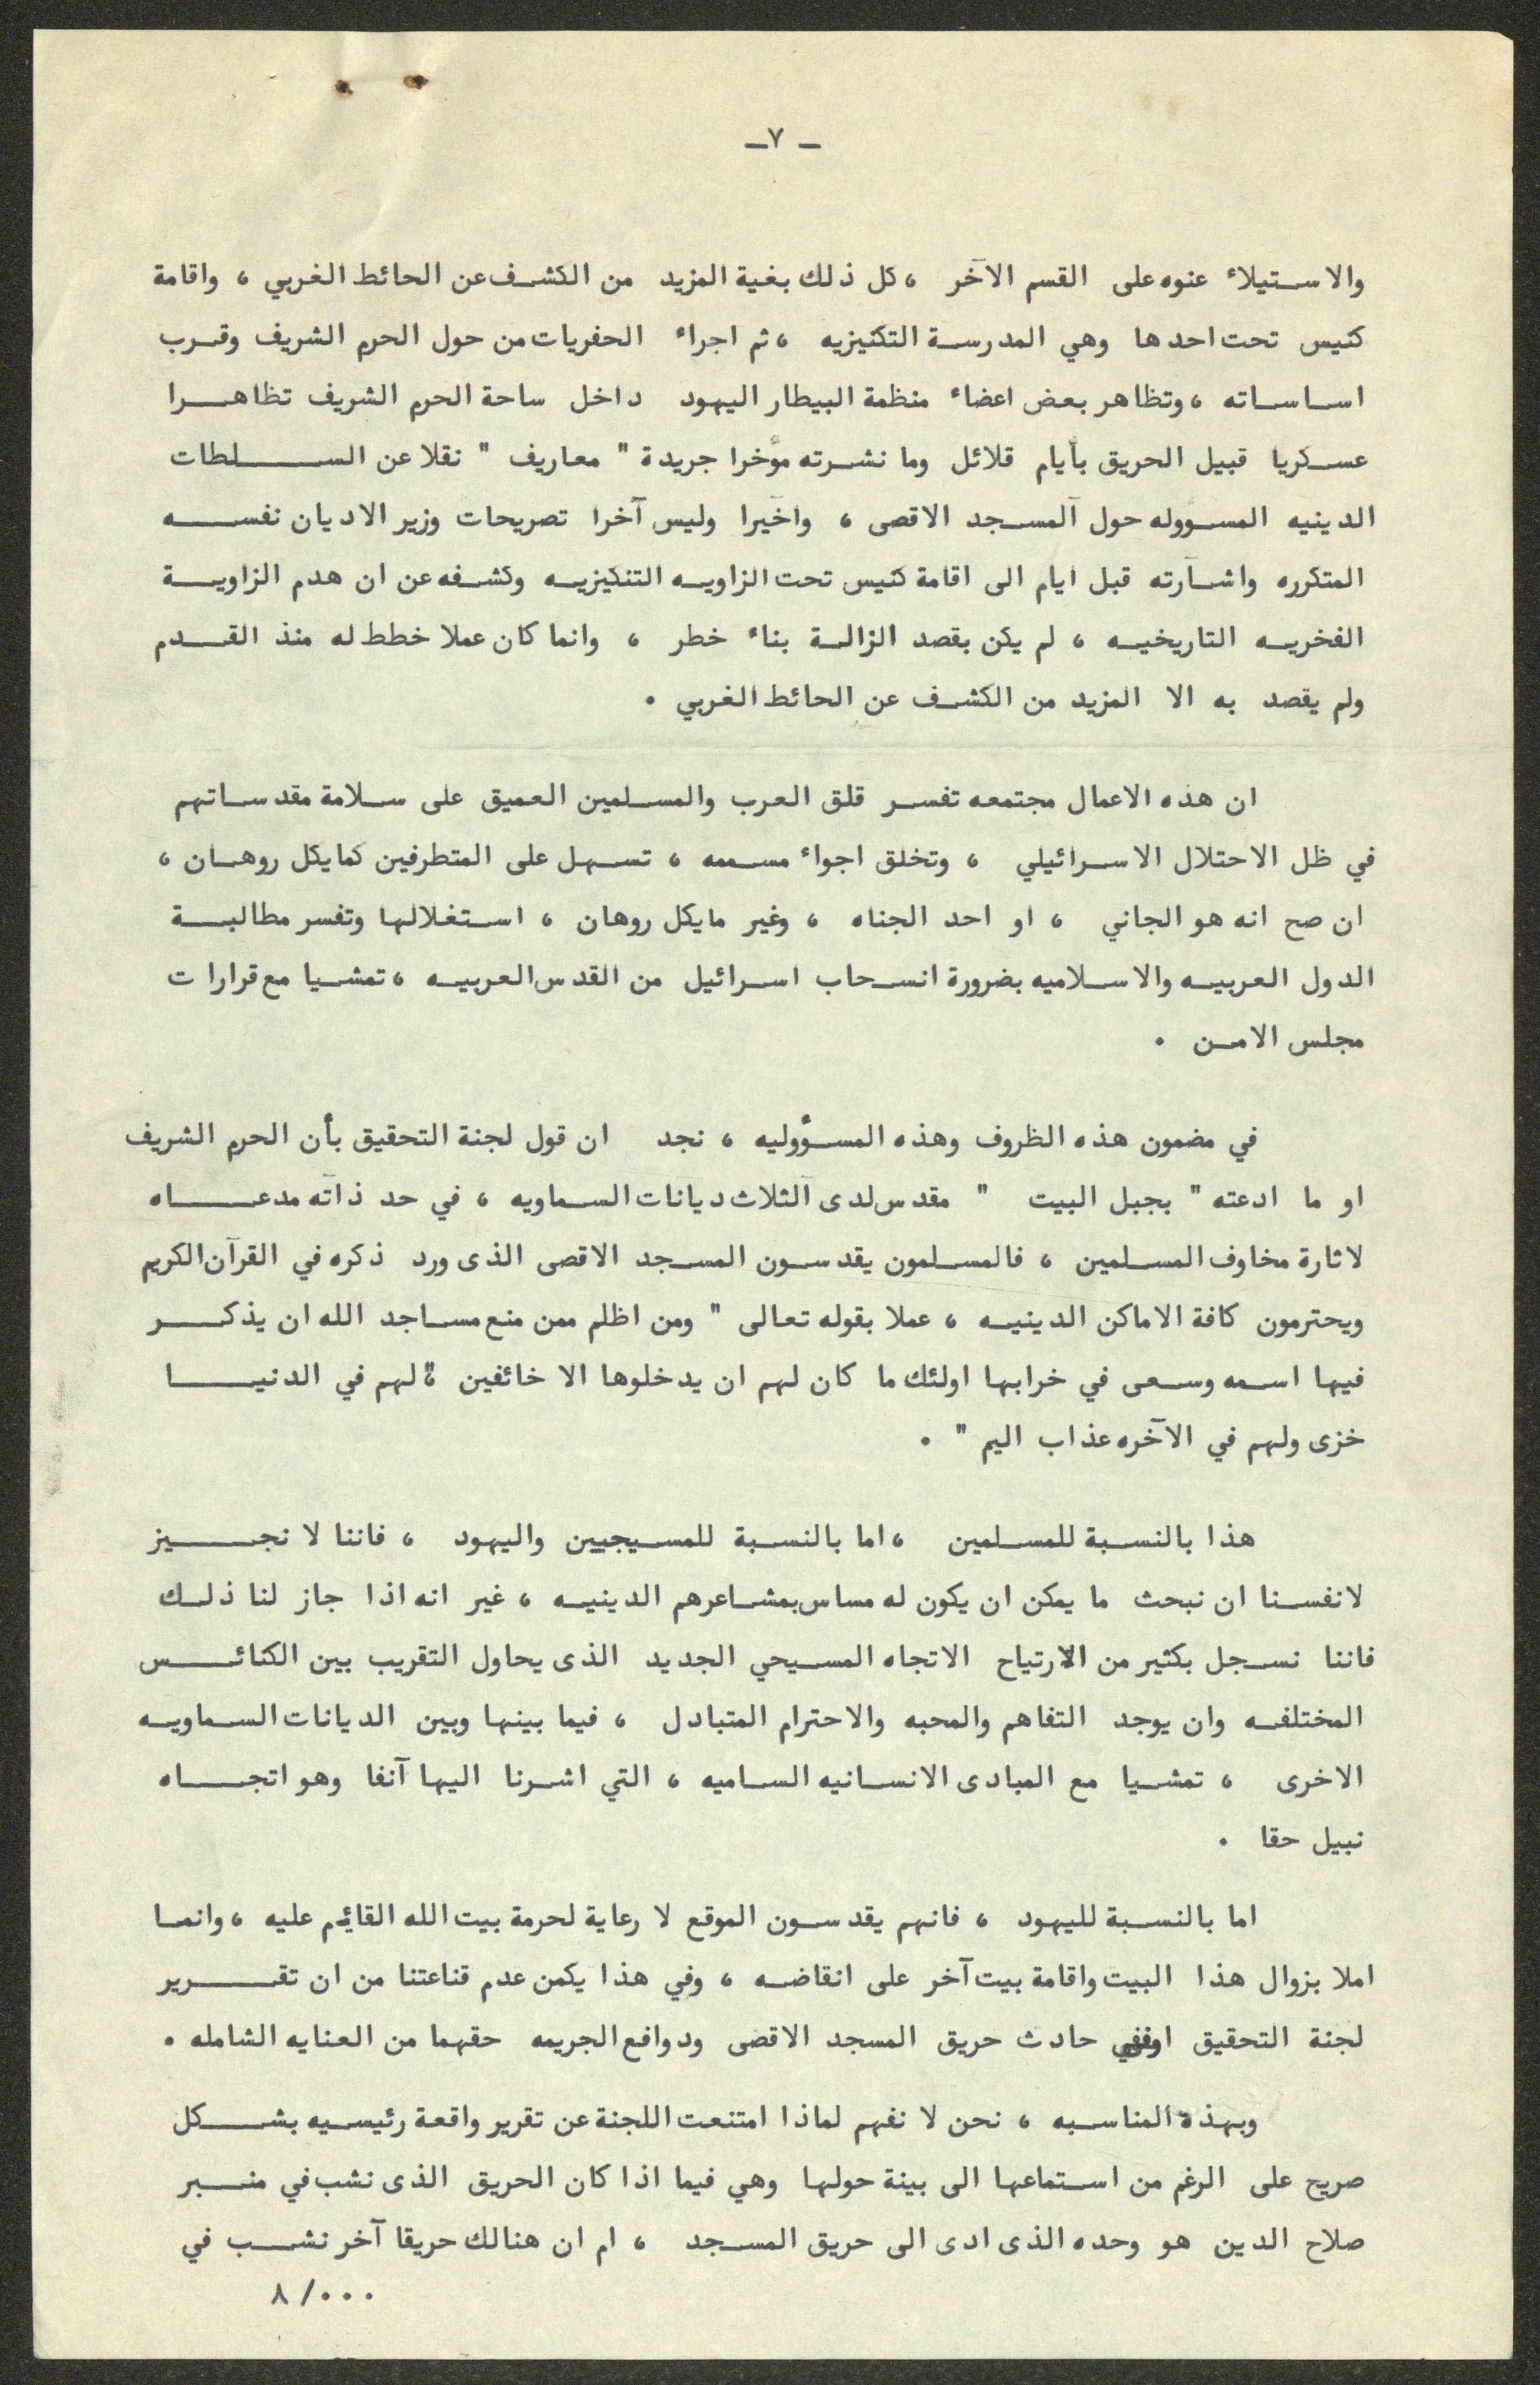 ـ ٧ ـ
والاستيلاء عنوه على القسم الآخر ، كل ذلك بغية المزيد من الكشف عن الحائط الغربي ، واقامة
كنيس تحت احدها وهي المدرسة التكنيزيه ، ثم اجراء الحفريات من حول الحرم الشريف وقرب
اساساته ، وتظاهر بعض اعضاء منظمة البيطار اليهود داخل ساحة الحرم الشريف تظاهرا
عسكريا قبيل الحريق بأيام قلائل وما نشرته مؤخرا جريدة " معاريف " نقلا عن السلطات
الدينيه المسووله حول المسجد الاقصى ، واخيرا وليس آخرا تصريحات وزير الاديان نفسه
المتكرره واشارته قبل ايام الى اقامة كنيس تحت الزاويه التنكيزيه وكشفه عن ان هدم الزاوية
الفخريه التاريخيه ، لم يكن بقصد الزالة بناء خطر ، وانما كان عملا خطط له منذ القدم
ولم يقصد به الا المزيد من الكشف عن الحائط الغربي .
ان هذه الاعمال مجتمعه تفسر قلق العرب والمسلمين العميق على سلامة مقدساتهم
في ظل الاحتلال الاسرائيلي ، وتخلق اجواء مسممه ، تسهل على المتطرفين كمايكل روهان ،
ان صح انه هو الجاني ، او احد الجناه ، وغير مايكل روهان ، استغلالها وتفسر مطالبة
الدول العربيه والاسلاميه بضرورة انسحاب اسرائيل من القدس العربيه ، تمشيا مع قرارات
مجلس الامن .
في مضمون هذه الظروف وهذه المسؤوليه ، نجد ان قول لجنة التحقيق بأن الحرم الشريف
او ما ادعته " بجبل البيت " مقدس لدى الثلاث ديانات السماويه ، في حد ذاته مدعاه
لاثارة مخاوف المسلمين ، فالمسلمون يقدسون المسجد الاقصى الذى ورد ذكره في القرآن الكريم
ويحترمون كافة الاماكن الدينيه ، عملا بقوله تعالى " ومن اظلم ممن منع مساجد الله ان يذكر
فيها اسمه وسعى في خرابها اولئك ما كان لهم ان يدخلوها الا خائفين ، لهم في الدنيا
خزى ولهم في الآخره عذاب اليم " .
هذا بالنسبة للمسلمين ، اما بالنسبة للمسيحيين واليهود ، فاننا لا نجيز
لانفسنا ان نبحث ما يمكن ان يكون له مساس بمشاعرهم الدينيه ، غير انه اذا جاز لنا ذلك
فاننا نسجل بكثير من الارتياح الاتجاه المسيحي الجديد الذى يحاول التقريب بين الكنائس
المختلفه وان يوجد التفاهم والمحبه والاحترام المتبادل ، فيما بينها وبين الديانات السماويه
الاخرى ، تمشيا مع المبادى الانسانيه الساميه ، التي اشرنا اليها آنفا وهو اتجاه
نبيل حقا .
اما بالنسبة لليهود ، فانهم يقدسون الموقع لا رعاية لحرمة بيت الله القائم عليه ، وانما
املا بزوال هذا البيت واقامة بيت آخر على انقاضه ، وفي هذا يكمن عدم قناعتنا من ان تقرير
لجنة التحقيق حادث حريق المسجد الاقصى ودوافع الجريمه حقهما من العنايه الشامله .
وبهذه المناسبه ، نحن لا نفهم لماذا امتنعت اللجنة عن تقرير واقعة رئيسيه بشكل
صريح على الرغم من استماعها الى بينة حولها وهي فيما اذا كان الحريق الذى نشب في منبر
صلاح الدين هو وحده الذى ادى الى حريق المسجد ، ام ان هنالك حريقا آخر نشب في
٨ /٠٠٠